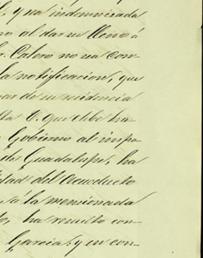 y na indemnizada
o al dar su lleno á
Calero no va con
la notificacion, que
nar de su residencia
lla C. que ebo ha
Gobierno al impo
de Guadalupe, ha
dad del Acueducto
á la mencionada
ha resuelto con
Garcia, y en con